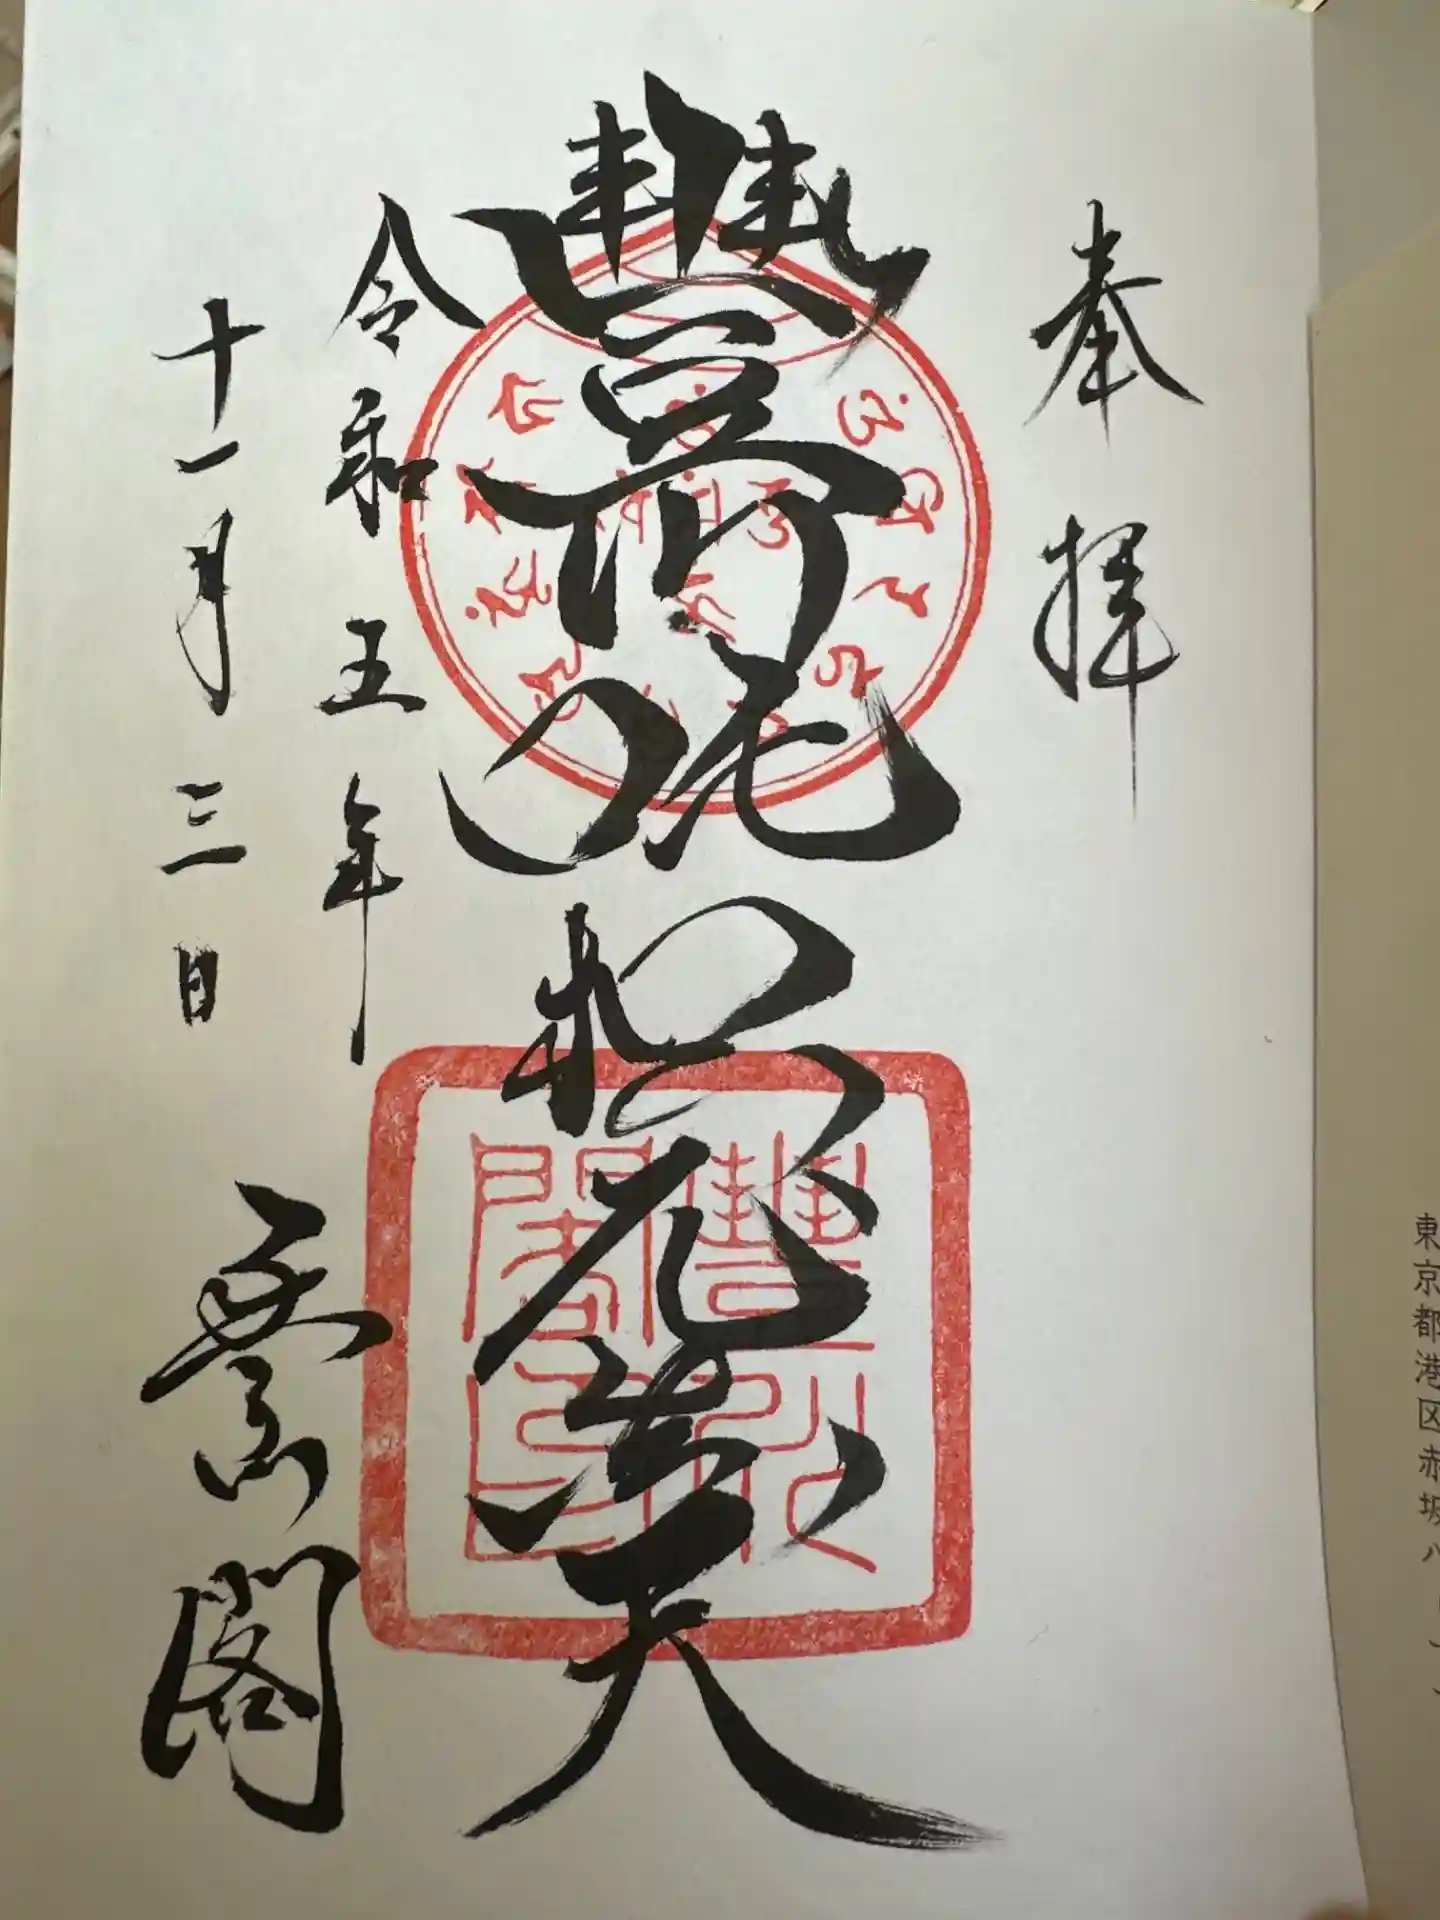 奉拝
豐川吒枳尼眞天
令和五年
十一月三日
豐川閣
豐川閣印
東京都港区赤坂